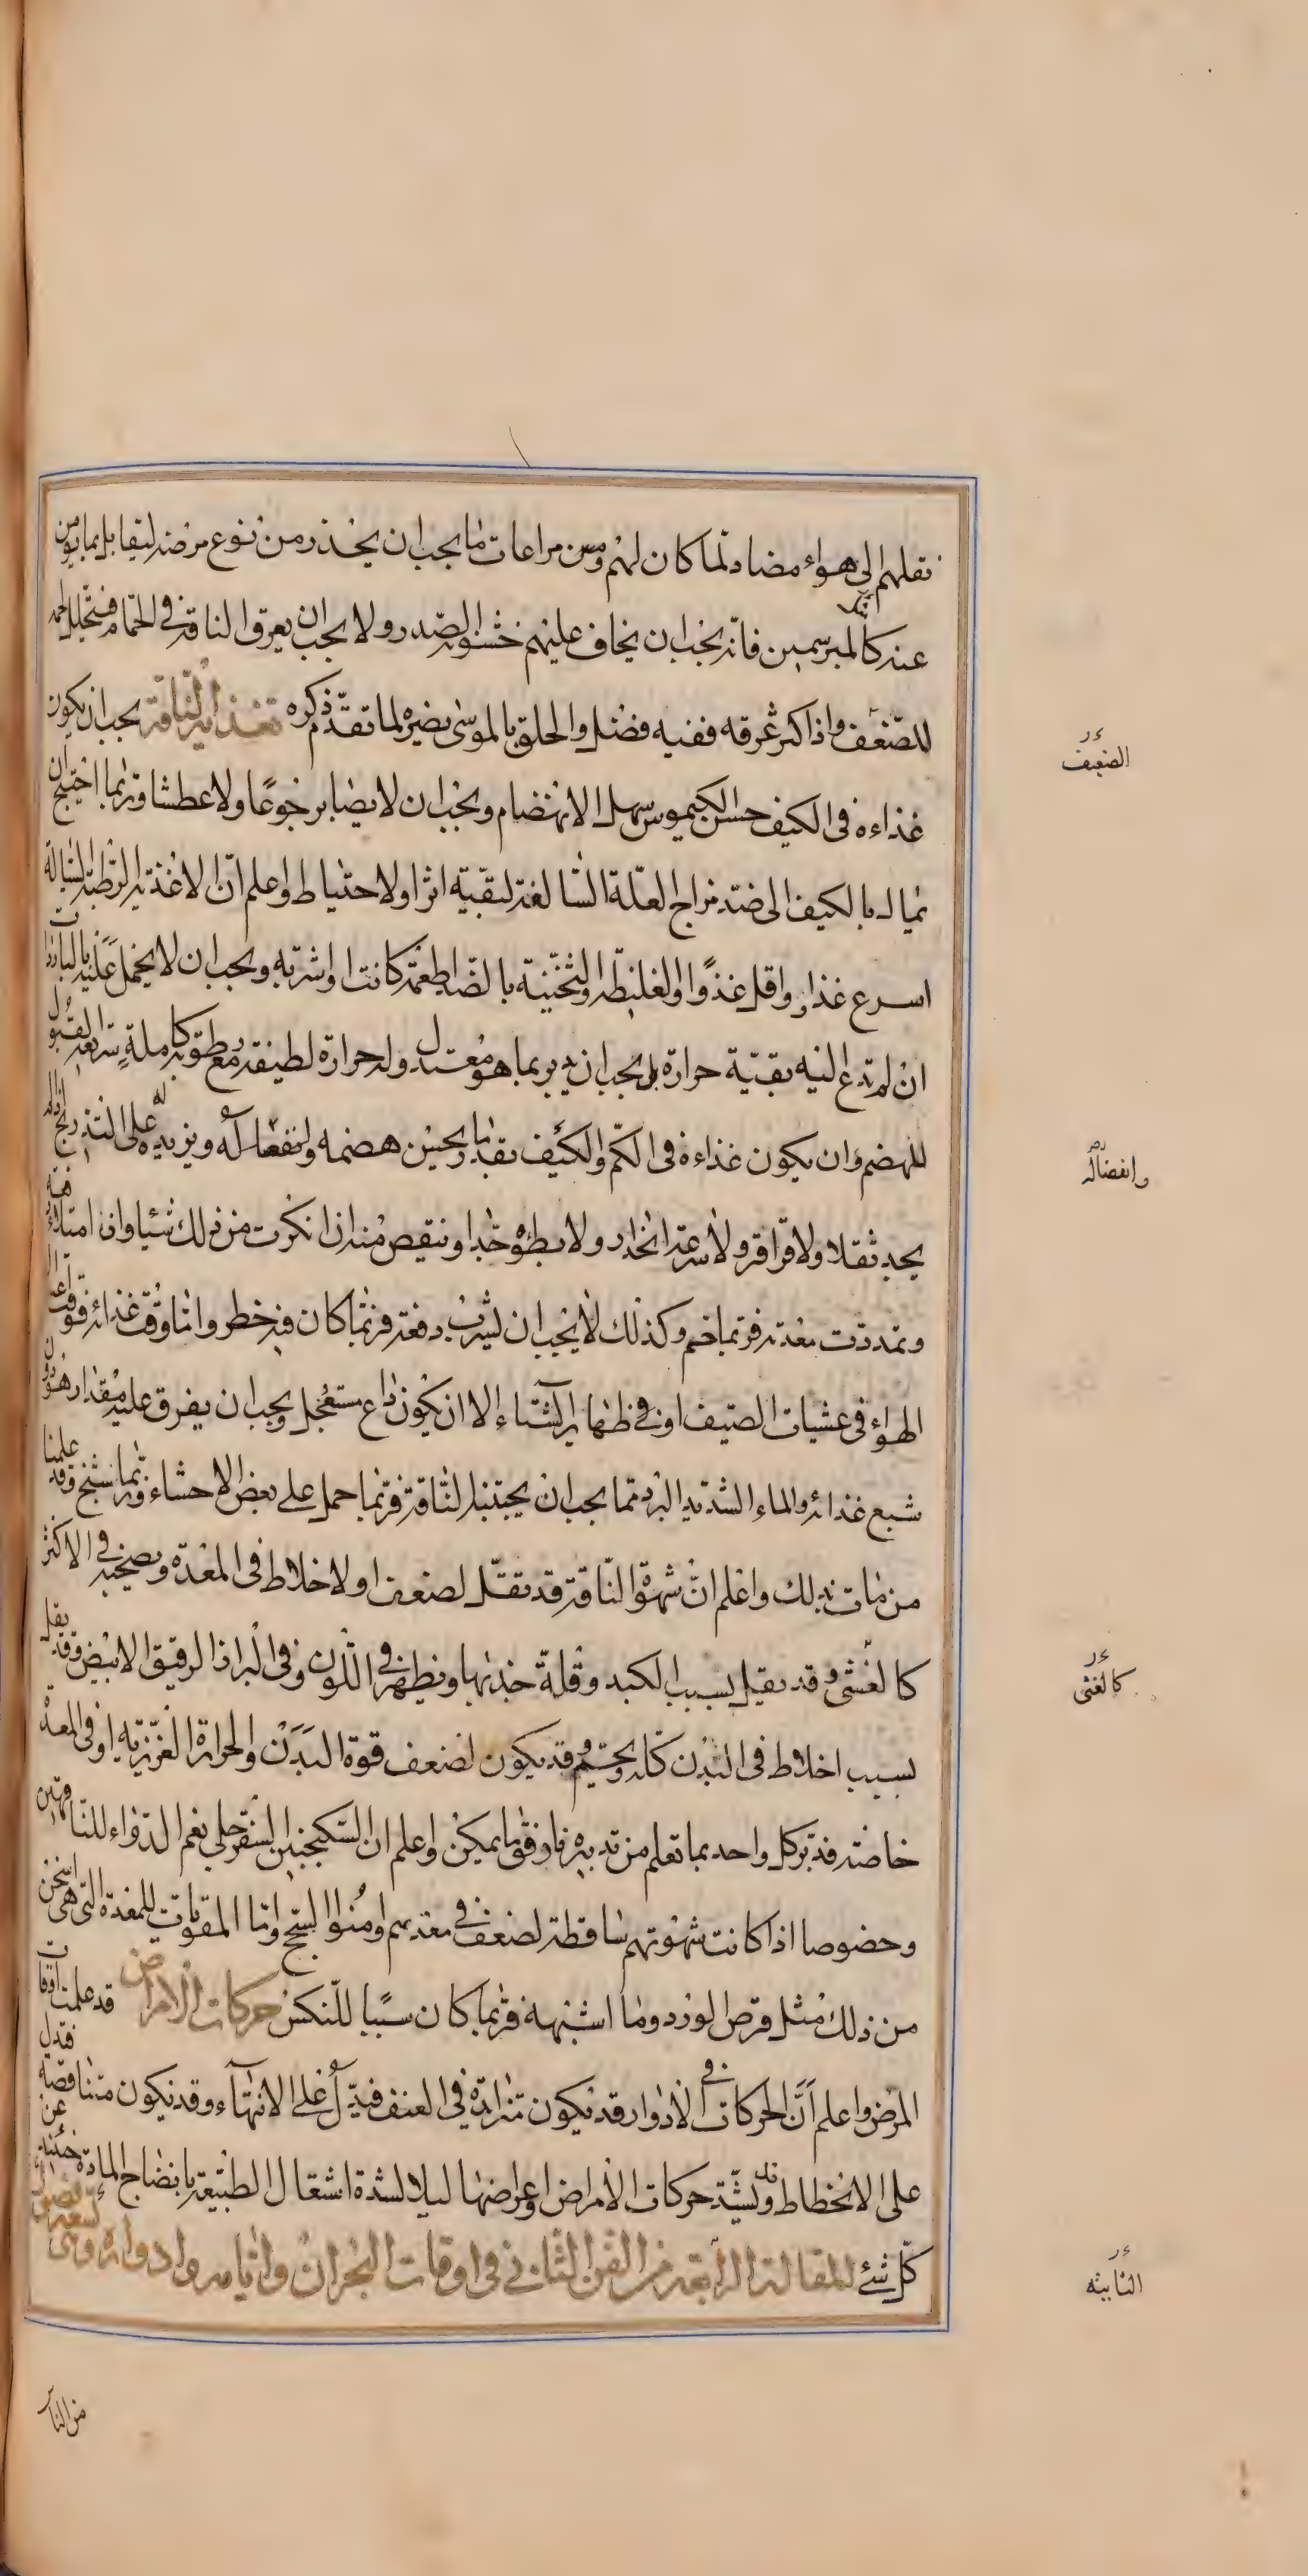 نقلهم الى هواء مضاد لما كان لهم ومن مراعات ما يجب ان يحذر من نوع مرضه ليقابل بما يؤمن
عنه كالمبرسمين فانه يجب ان يخاف عليهم خشونة الصدر ولا يجب ان يعرق الناقة فى الحمام فيتحلل لحمه
للضعف واذا كثر عرقه ففيه فضل والحلق بالموسى يضره لما تقدم ذكره تغذية الناقة يجب ان يكون
غذاءه فى الكيف حسن الكيموس سهل الانهضام ويجب ان لا يصابر جوعا ولا عطشا وربما احتيج ان
يمال بالكيف الى ضد مزاج العلة السالفة لبقية اثرا ولا حتياط واعلم ان الاغذية الرطبة السيالة
اسرع غذاء واقل غذوا والغليظة والثخينة بالضد اطعمة كانت او اشربه ويجب ان لا يحمل عليه بالباردات
ان لم تدع اليه بقية حرارة بل يجب ان يدبر بما هو معتدل وله حرارة لطيفة مع رطوبة كاملة سريعة القبول
للهضم وان يكون غذاءه فى الكم والكيف بقدر ما يحسن هضمه وانفعاله له ويزيده على التدريج اذا لم
يجد ثقلا ولا قراقر ولا سرعة انحدار ولا بطؤه جدا وينقص منه ان انكرت من ذلك شيئا وان امتلاء دفعة
وتمددت معدته فربما حم وكذلك لا يجب ان يشرب دفعة فربما كان فيه خطر واما وقت غذائه فوقت اعتدال
الهواء فى عشيات الصيف او فى ظهاير الشتاء الا ان يكون داع مستعجل ويجب ان يفرق عليه مقدار هو دون
شبع غذائه والماء الشديد البرد مما يجب ان يجتنبه الناقة فربما حمل على بعض الاحشاء وربما شنج وقد علمنا
من مات بذلك واعلم ان شهوة الناقة قد تقل لضعف او لاخلاط فى المعدة ويصحبه فى الاكثر
كالغشى وقد يقل بسبب الكبد وقلة جذبها ويظهر فى اللون وفى البراز الرقيق الابيض وقد يقل
بسبب اخلاط فى البدن كله وتخم وقد يكون لضعف قوة البدن والحرارة الغريزية او فى المعدة
خاصة فدبر كل واحد بما تعلم من تدبيره فارفق ما يمكن واعلم ان السكنجبين السفرجلى نعم الدواء للناقهين
وخصوصا اذا كانت شهوتهم ساقطة لضعف فى معدتهم وامنوا السحج واما المقويات للمعدة التى هى اسخن
من ذلك مثل قرص الورد وما اشبهه فربما كان سببا للنكس حركات الامراض قد علمت اوقات
المرض واعلم ان الحركات فى الادوار قد تكون متزايدة فى العنف فتدل على الانتهاء وقد تكون متناقصة فتدل
على الانحطاط وقد يشتد حركات الامراض واعراضها ليلا لشدة اشتغال الطبيعة بانضاج المادة حينئذ عن
كل شئ المقالة الرابعة من الفن الثانى فى اوقات البحران وايامه وادواره وهى تسعة فصول
الضعيف
وانفصاله
كالغثى
النابيه
من النا